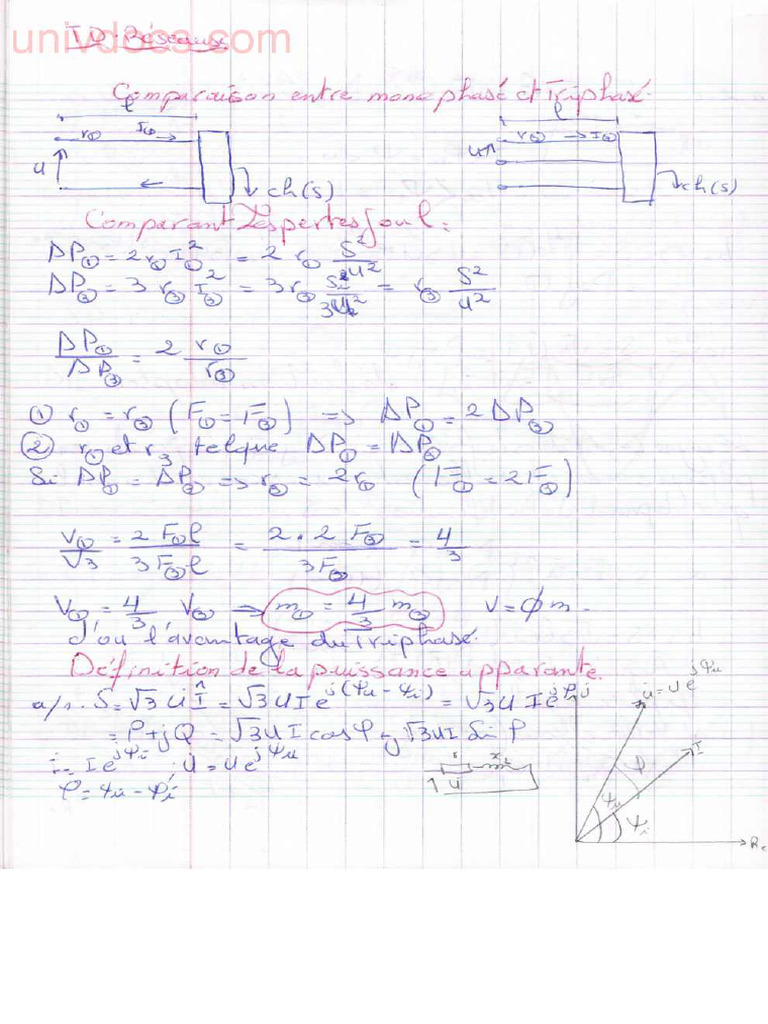 univdocs.com
T.D. Réseaux
Comparaison entre monophasé et Triphasé.
l l
r① I① r③ I③
u u
ch(S) ch(S)
Comparant Les pertes Joul:
ΔP① = 2 r① I①² = 2 r① S²/u²
ΔP③ = 3 r③ I③² = 3 r③ S²/3u² = r③ S²/u²
ΔP①/ΔP③ = 2 r①/r③
① r① = r③ (F① = F③) => ΔP① = 2 ΔP③
② r① et r3 telque ΔP① = ΔP③
Si ΔP① = ΔP③ => r③ = 2r① (F① = 2F③)
V①/V3 = 2 F① l / 3 F③ l = 2 . 2 F③ / 3F③ = 4/3
V① = 4/3 V③ → m① = 4/3 m③ V = ϕ m .
d'où l'avantage du Triphasé.
Définition de la puissance apparante.
a/s. S = √3 U Î = √3 U I e^j(Ψu - Ψi) = √3 U I e^jφ
= P + jQ = √3 U I cos φ + j √3 U I Sin φ
i = I e^jΨi ; u = u e^jΨu
φ = Ψu - Ψi
r x
u
j
u = u e^jΨu
I
φ
Ψu
Ψi
Re